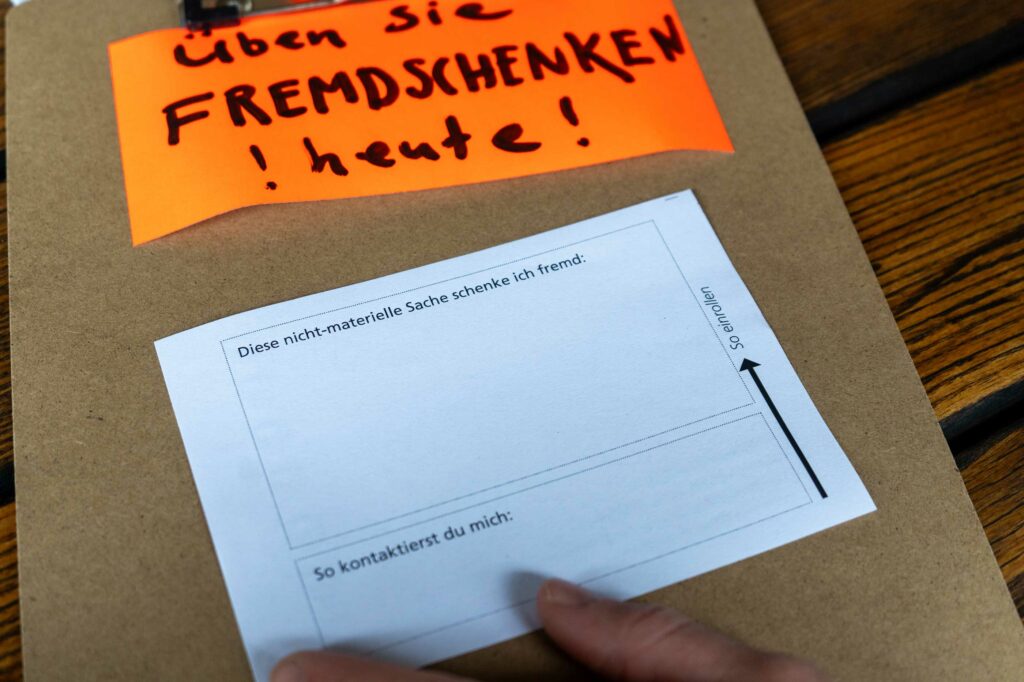 Üben Sie
FREMDSCHENKEN
! heute!
Diese nicht-materielle Sache schenke ich fremd:
So einrollen
So kontaktierst du mich: